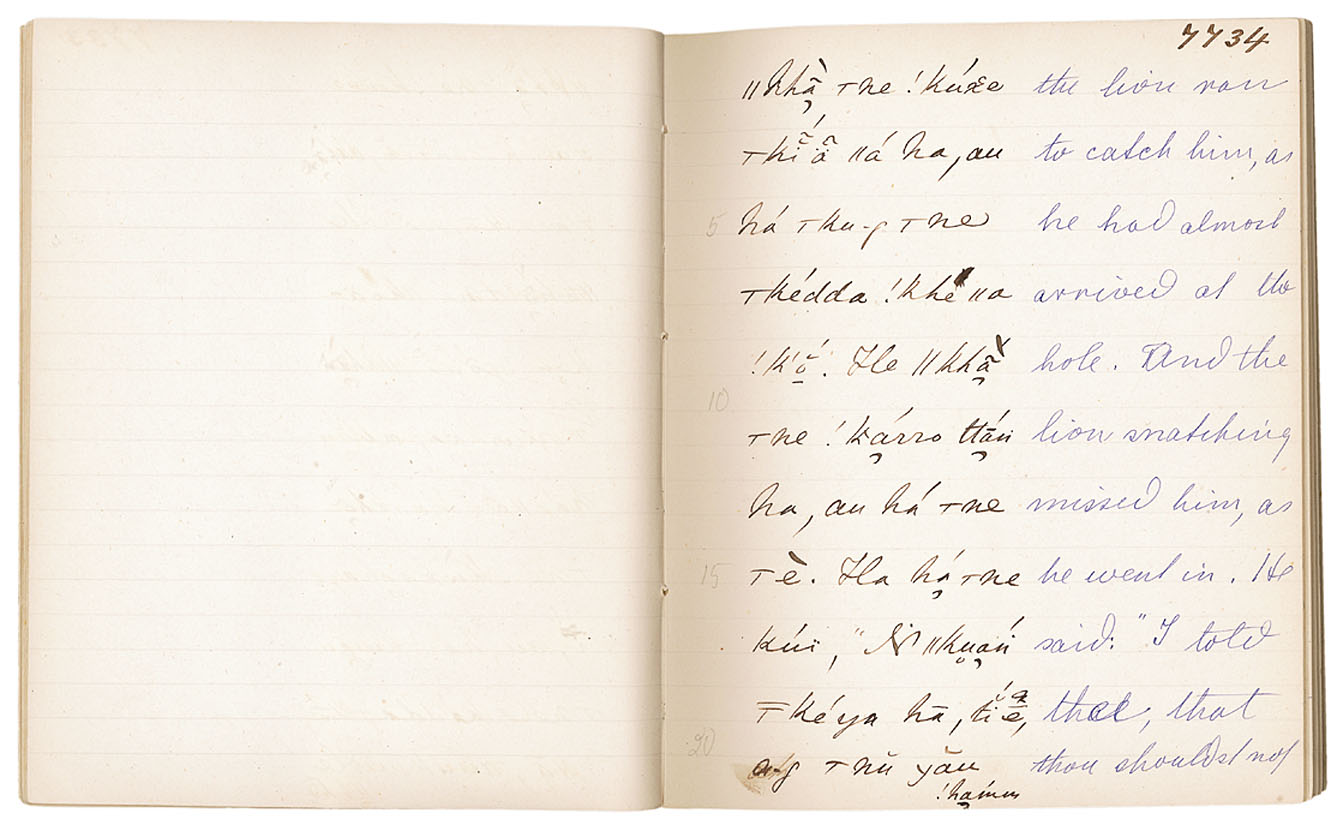 7734
ǁkhà̃ ⊤ne !kúẋe the lion ran
⊤kĭ́ ā̆ ǁá ha, au to catch him, as
5 há ⊤ku-g ⊤ne he had almost
⊤kédda !khé ǁa arrived at the
!k'ŏ́. He ǁkhà̃ hole. And the
10
⊤ne !kárro ttā́ŋ lion snatching
ha, au há ⊤ne missed him, as
15 ⊤è. Ha há ⊤ne he went in. He
kúï, "Ṅ ǁkuaŋ́ said: "I told
⊤kéya hā, tĭ́ ē, thee, that
20 a-g ⊤nŭ yāu thou shouldst not
!hamm